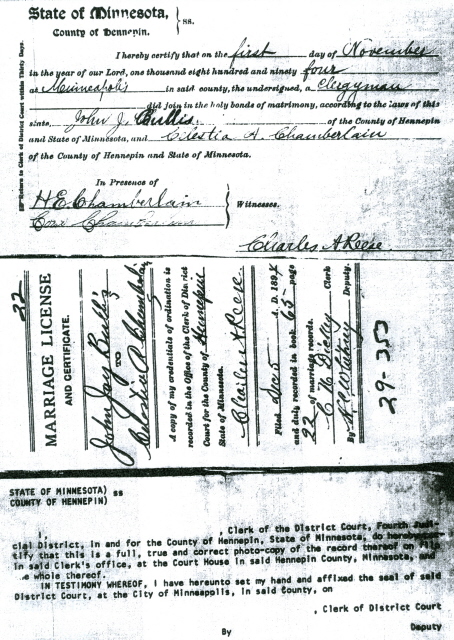 State of Minnesota,
County of Hennepin.
} ss.
I hereby certify that on the first day of November
in the year of our Lord, one thousand eight hundred and ninety four
at Minneapolis in said county, the undersigned, a Clergyman
did join in the holy bonds of matrimony, according to the laws of this
state, John J. Bullis. of the County of Hennepin
and State of Minnesota, and Celestia A. Chamberlain
of the County of Hennepin and State of Minnesota.
Return to Clerk of District Court within Thirty Days.
In Presence of
H E Chamberlain
Chamberlain
} Witnesses.
Charles A Reese
22
MARRIAGE LICENSE
AND CERTIFICATE.
John Jay Bullis
TO
Celestia A Chamberlain
A copy of my credentials of ordination is
recorded in the Office of the Clerk of District
Court for the County of Hennepin
State of Minnesota.
Charles A Reese.
Filed Dec 5 A. D. 1894
and duly recorded in book 65 page
22 of marriage records.
C. N. Dickey Clerk
By Deputy.
29-353
STATE OF MINNESOTA) ss
COUNTY OF HENNEPIN)
I, , Clerk of the District Court, Fourth Judi-
cial District, in and for the County of Hennepin, State of Minnesota, do hereby cer-
tify that this is a full, true and correct photo-copy of the record thereof on file
in said Clerk's office, at the Court House in said Hennepin County, Minnesota, and
whole thereof.
IN TESTIMONY WHEREOF, I have hereunto set my hand and affixed the seal of said
District Court, at the City of Minneapolis, in said County, on
, Clerk of District Court
By Deputy